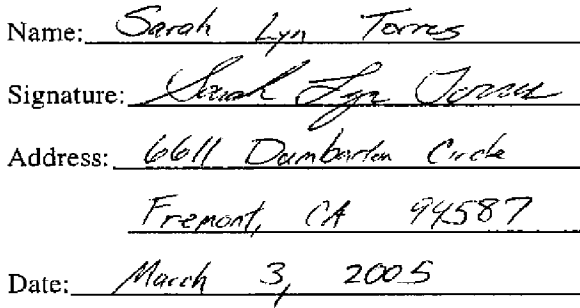 Name: Sarah Lyn Torres
Signature: Sarah Lyn Torres
Address: 6611 Dumbarton Circle
Fremont, CA 94587
Date: March 3, 2005